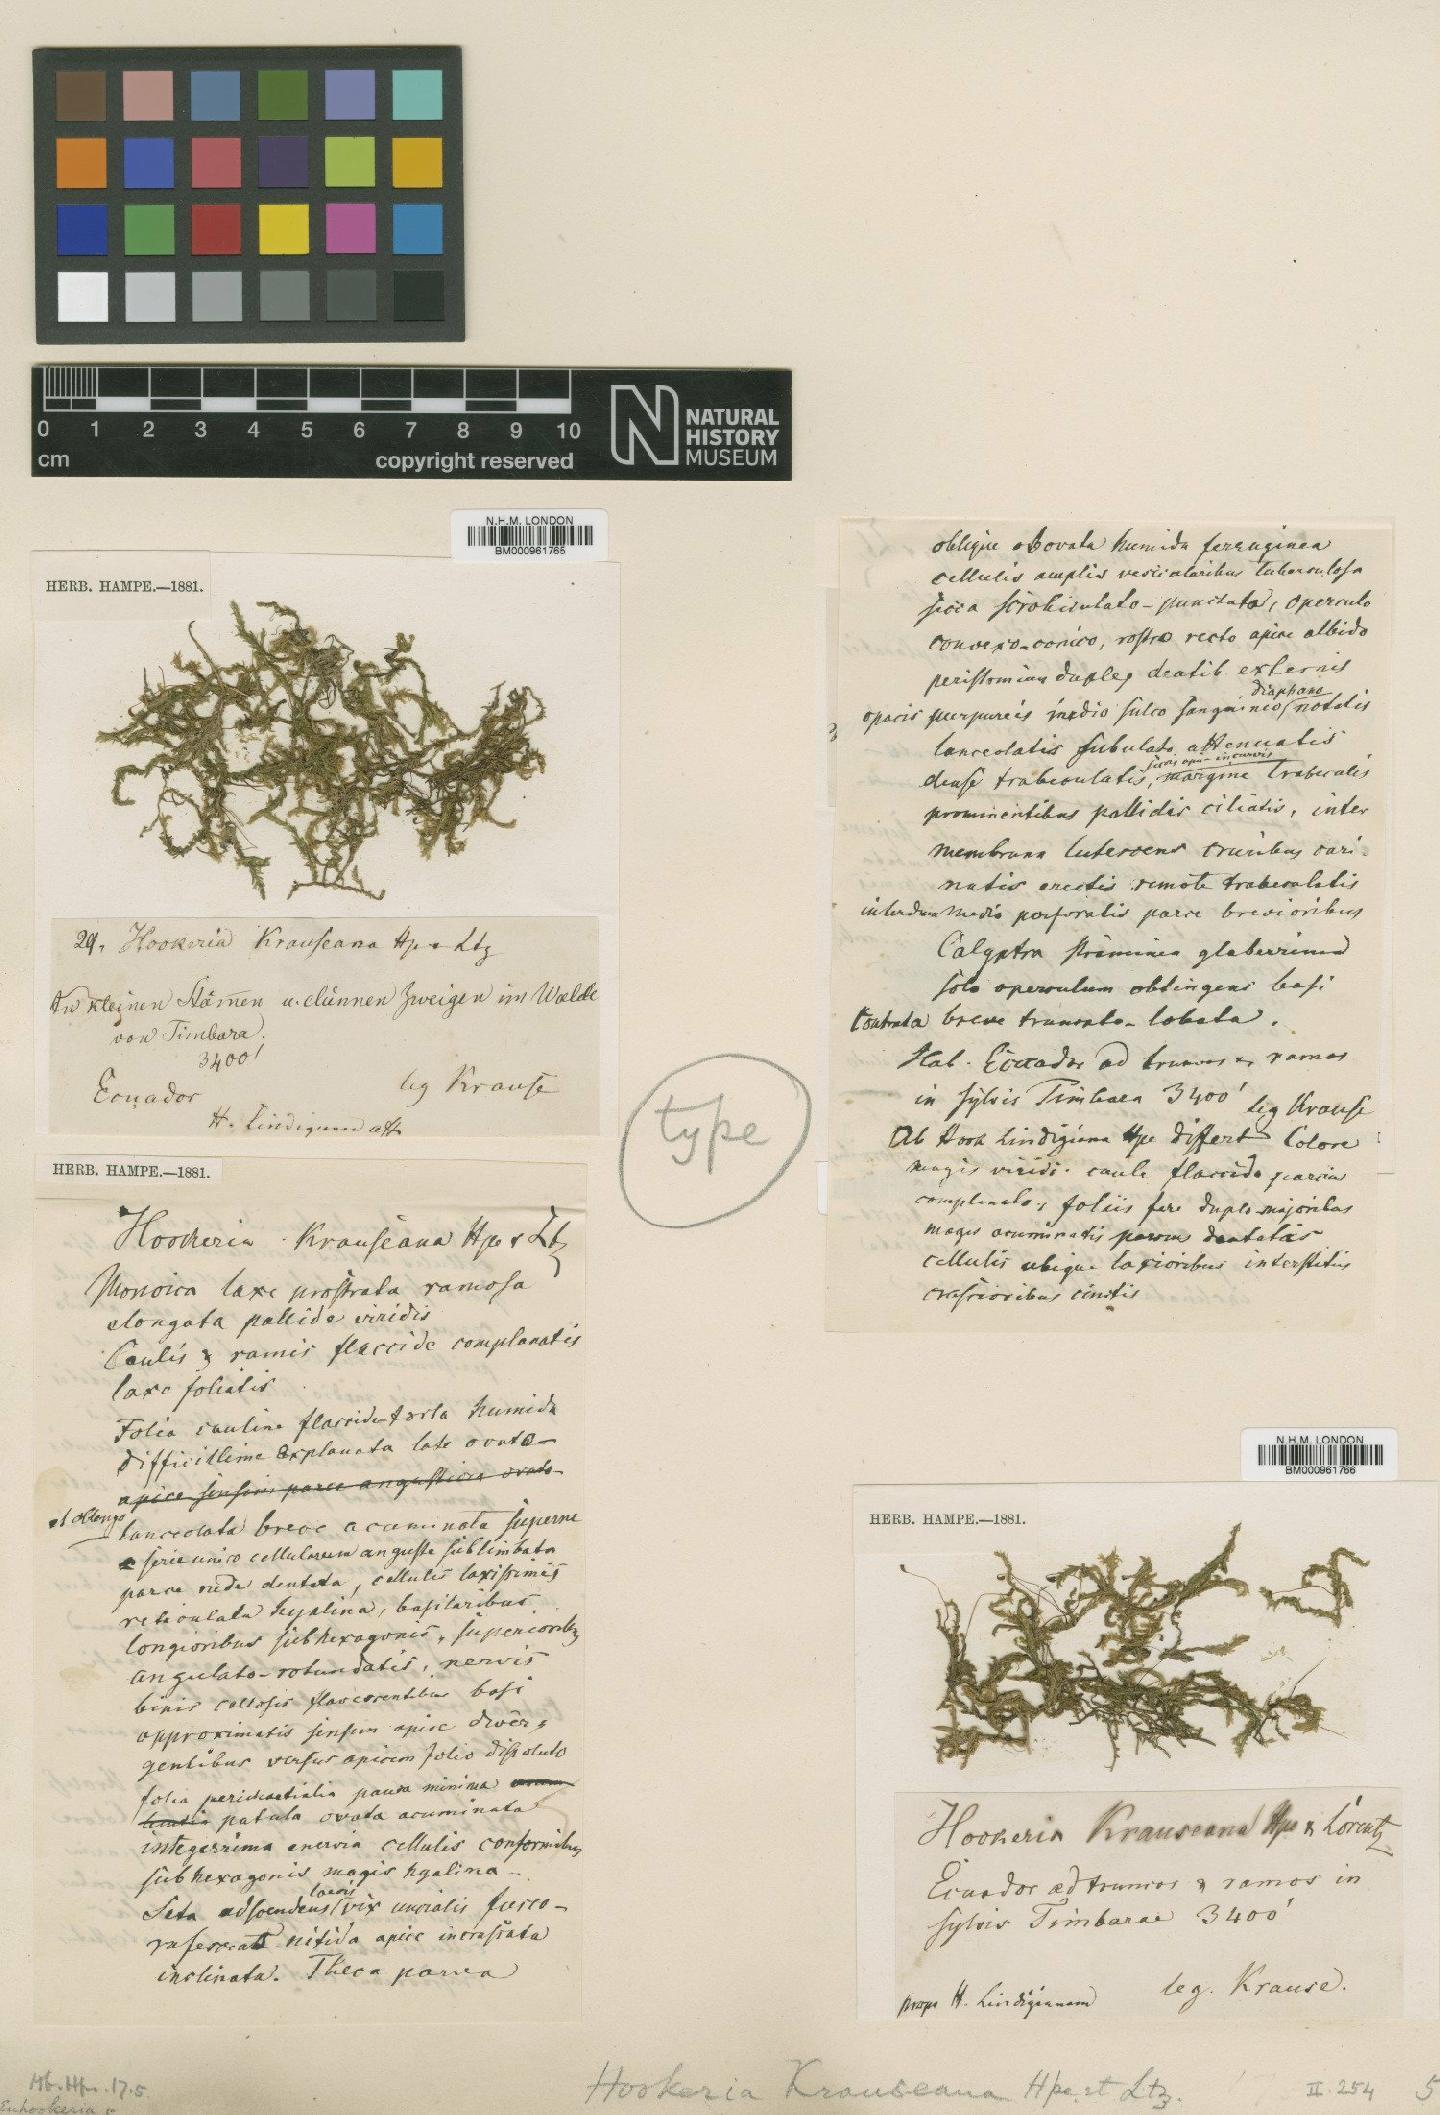 0 1 2 3 4 5 6 7 8 9 10
cm copyright reserved
NATURAL
HISTORY
MUSEUM
N.H.M. LONDON
BM000961765
HERB. HAMPE.—1881.
29. Hookeria Krauseana Hpe & Ltz
An kleinen Stämen u. dünnen Zweigen im Walde
von Timbara.
3400'
Ecuador leg Krause
H. Lindigiana aff
HERB. HAMPE.—1881.
Hookeria Krauseana Hpe & Ltz
Monoica laxe prostrata ramosa
elongata pallide viridis
Caulis & ramis flaccide complanatis
laxe foliatis
Folia caulina flaccida torta humida
difficillime explanata late ovato-
apice sensim parce angustiora ovato-
et oblongo
lanceolata breve acuminata superne
serie unico cellularum anguste sublimbata
parce rude dentata, cellulis laxissimis
reticulata hyalina, basilaribus
longioribus subhexagonis, superioribus
angulato-rotundatis, nervis
binis callosis flavescentibus basi
approximatis sensim apice diver-
gentibus versus apicem folio dissoluto
folia perichaetialia pauca minima
patula ovata acuminata
integerrima enervia cellulis conformibus
subhexagonis magis hyalina-
laevis
Seta adscendens vix uncialis fusco-
rufescens nitida apice incrassata
inclinata. Theca parva
type
oblique obovata humida ferruginea
cellulis amplis vesicularibus tuberculosa
sicca scrobiculato-punctata, operculo
convexo-conico, rostro recto apice albido
peristomium duplex dentib externis
diaphano
opacis purpureis medio sulco sanguineo notatis
lanceolatis subulato attenuatis
siccis apice incurvis
dense trabeculatis, margine trabeculis
prominentibus pallidis ciliatis, inter
membrana lutescens cruribus cari-
natis erectis remote trabeculatis
interdum medio perforatis parce brevioribus
Calyptra straminea glaberrima
solo operculum obtingens basi
contracta breve truncato-lobata.
Hab. Ecuador ad truncos & ramos
in sylvis Timbara 3400' leg Krause
Ab Hook Lindigiana Hpe differt Colore
magis viridi. caule flaccido parcius
complanato, foliis fere duplo majoribus
magis acuminatis parcius dentatis
cellulis ubique laxioribus interstitiis
crassioribus cinctis
N.H.M. LONDON
BM000961766
HERB. HAMPE.—1881.
Hookeria Krauseana Hpe & Lorentz
Ecuador ad truncos & ramos in
sylvis Timbarae 3400'
leg. Krause.
prope H. Lindigianam
Hb. Hpe. 17.5.
Euhookeria
Hookeria Krauseana Hpe. et Ltz.
II. 254 5